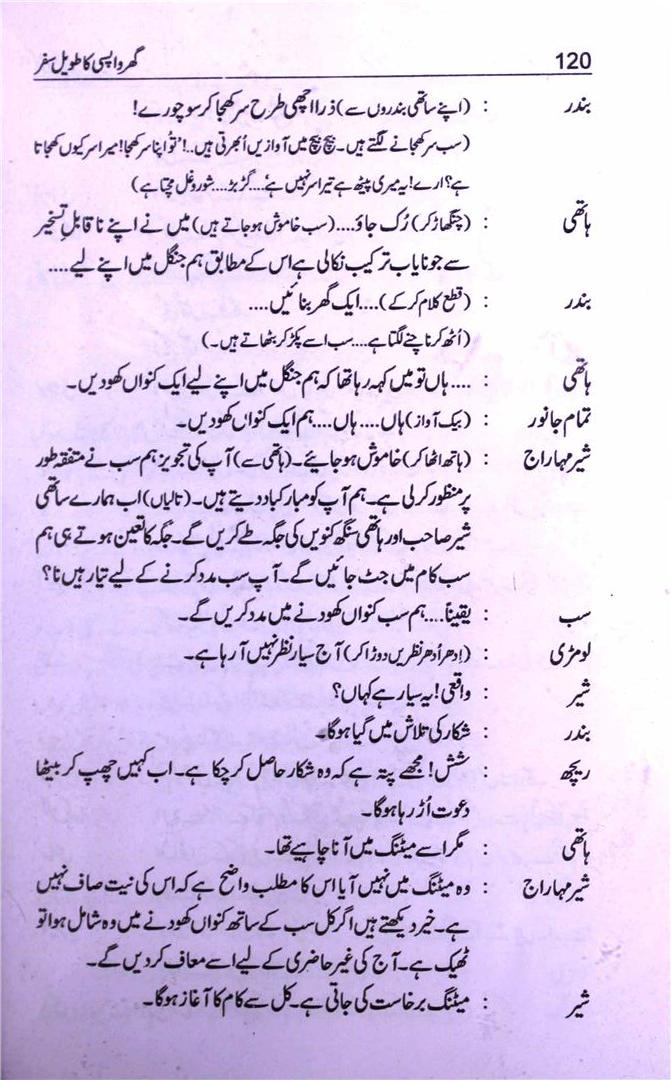 120 گھر واپسی کا طویل سفر
بندر : (اپنے ساتھی بندروں سے) ذرا اچھی طرح سر کھجا کر سوچورے!
(سب سر کھجانے لگتے ہیں۔ بیچ بیچ میں آوازیں اُبھرتی ہیں..!'تُو اپنا سر کھجا! میرا سر کیوں کھجاتا
ہے؟ ارے! یہ میری پیٹھ ہے تیرا سر نہیں ہے'.... گڑبڑ.... شور و غل مچتا ہے)
ہاتھی : (چنگھاڑ کر) رُک جاؤ.... (سب خاموش ہو جاتے ہیں) میں نے اپنے ناقابلِ تسخیر
سے جو نایاب ترکیب نکالی ہے اس کے مطابق ہم جنگل میں اپنے لیے....
بندر : (قطع کلام کر کے).... ایک گھر بنائیں....
(اُٹھ کر ناچنے لگتا ہے.... سب اسے پکڑ کر بٹھاتے ہیں۔)
ہاتھی : .... ہاں تو میں کہہ رہا تھا کہ ہم جنگل میں اپنے لیے ایک کنواں کھودیں۔
تمام جانور : (بیک آواز) ہاں.... ہاں.... ہم ایک کنواں کھودیں۔
شیر مہاراج : (ہاتھ اٹھا کر) خاموش ہو جائیے۔ (ہاتھی سے) آپ کی تجویز ہم سب نے متفقہ طور
پر منظور کر لی ہے۔ ہم آپ کو مبارکباد دیتے ہیں۔ (تالیاں) اب ہمارے ساتھی
شیر صاحب اور ہاتھی سنگھ کنویں کی جگہ طے کریں گے۔ جگہ کا تعین ہوتے ہی ہم
سب کام میں جٹ جائیں گے۔ آپ سب مدد کرنے کے لیے تیار ہیں نا؟
سب : یقیناً.... ہم سب کنواں کھودنے میں مدد کریں گے۔
لومڑی : (اِدھر اُدھر نظریں دوڑا کر) آج سیار نظر نہیں آ رہا ہے۔
شیر : واقعی! یہ سیار ہے کہاں؟
بندر : شکار کی تلاش میں گیا ہوگا۔
ریچھ : شش! مجھے پتہ ہے کہ وہ شکار حاصل کر چکا ہے۔ اب کہیں چھپ کر بیٹھا
دعوت اُڑا رہا ہوگا۔
ہاتھی : مگر اسے میٹنگ میں آنا چاہیے تھا۔
شیر مہاراج : وہ میٹنگ میں نہیں آیا اس کا مطلب واضح ہے کہ اس کی نیت صاف نہیں
ہے۔ خیر دیکھتے ہیں اگر کل سب کے ساتھ کنواں کھودنے میں وہ شامل ہوا تو
ٹھیک ہے۔ آج کی غیر حاضری کے لیے اسے معاف کر دیں گے۔
شیر : میٹنگ برخاست کی جاتی ہے۔ کل سے کام کا آغاز ہوگا۔